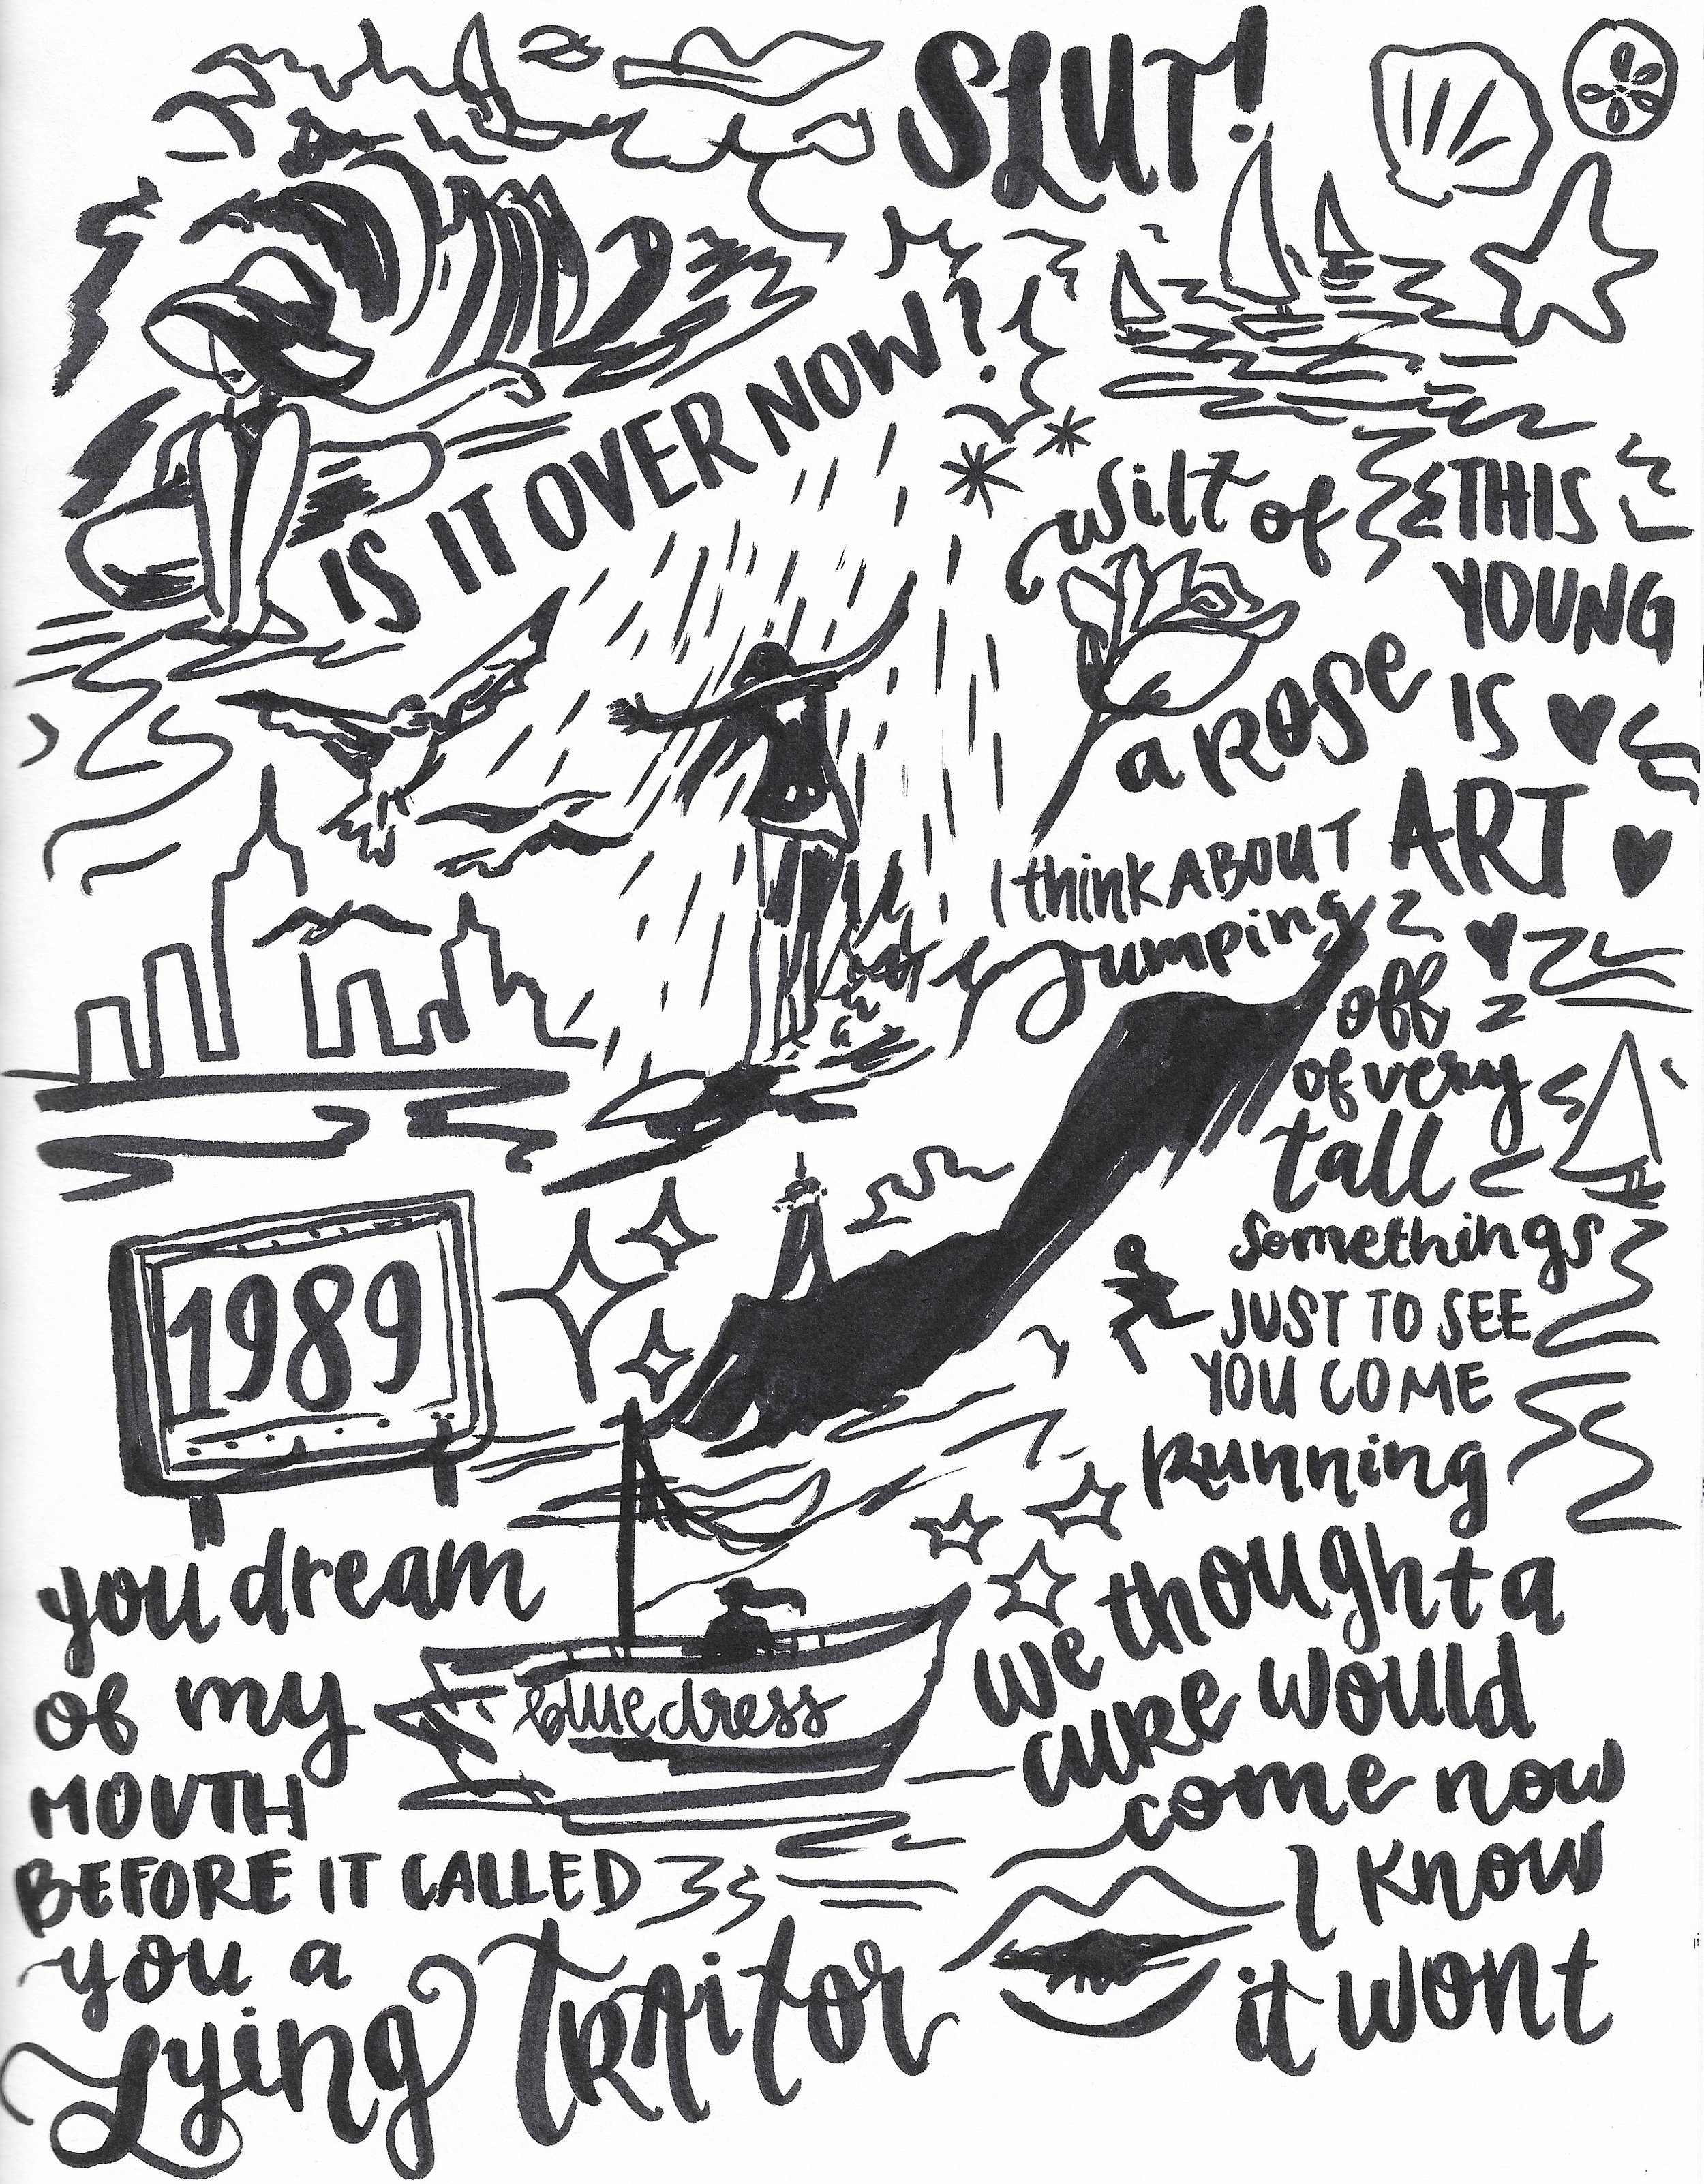 SLUT!
IS IT OVER NOW?
wilt of
a ROSe
THIS
YOUNG
IS
ART
I thinK ABOUT
Jumping
off
of very
tall
somethings
JUST TO SEE
YOU COME
Running
1989
bluedress
you dream
of my
MOUTH
BEFORE IT CALLED
you a
Lying TRAitor
we thought a
cuRe would
come now
I Know
it wont